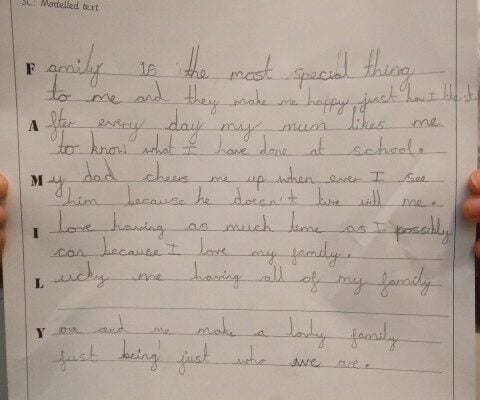 SC: Modelled text
Family is the most special thing
to me and they make me happy just how I like it.
After every day my mum likes me
to know what I have done at school.
My dad cheers me up when ever I see
him because he doesn't live with me.
I love having as much time as I possibly
can because I love my family.
Lucky me having all of my family
You and me make a lovly family
just being just who we are.